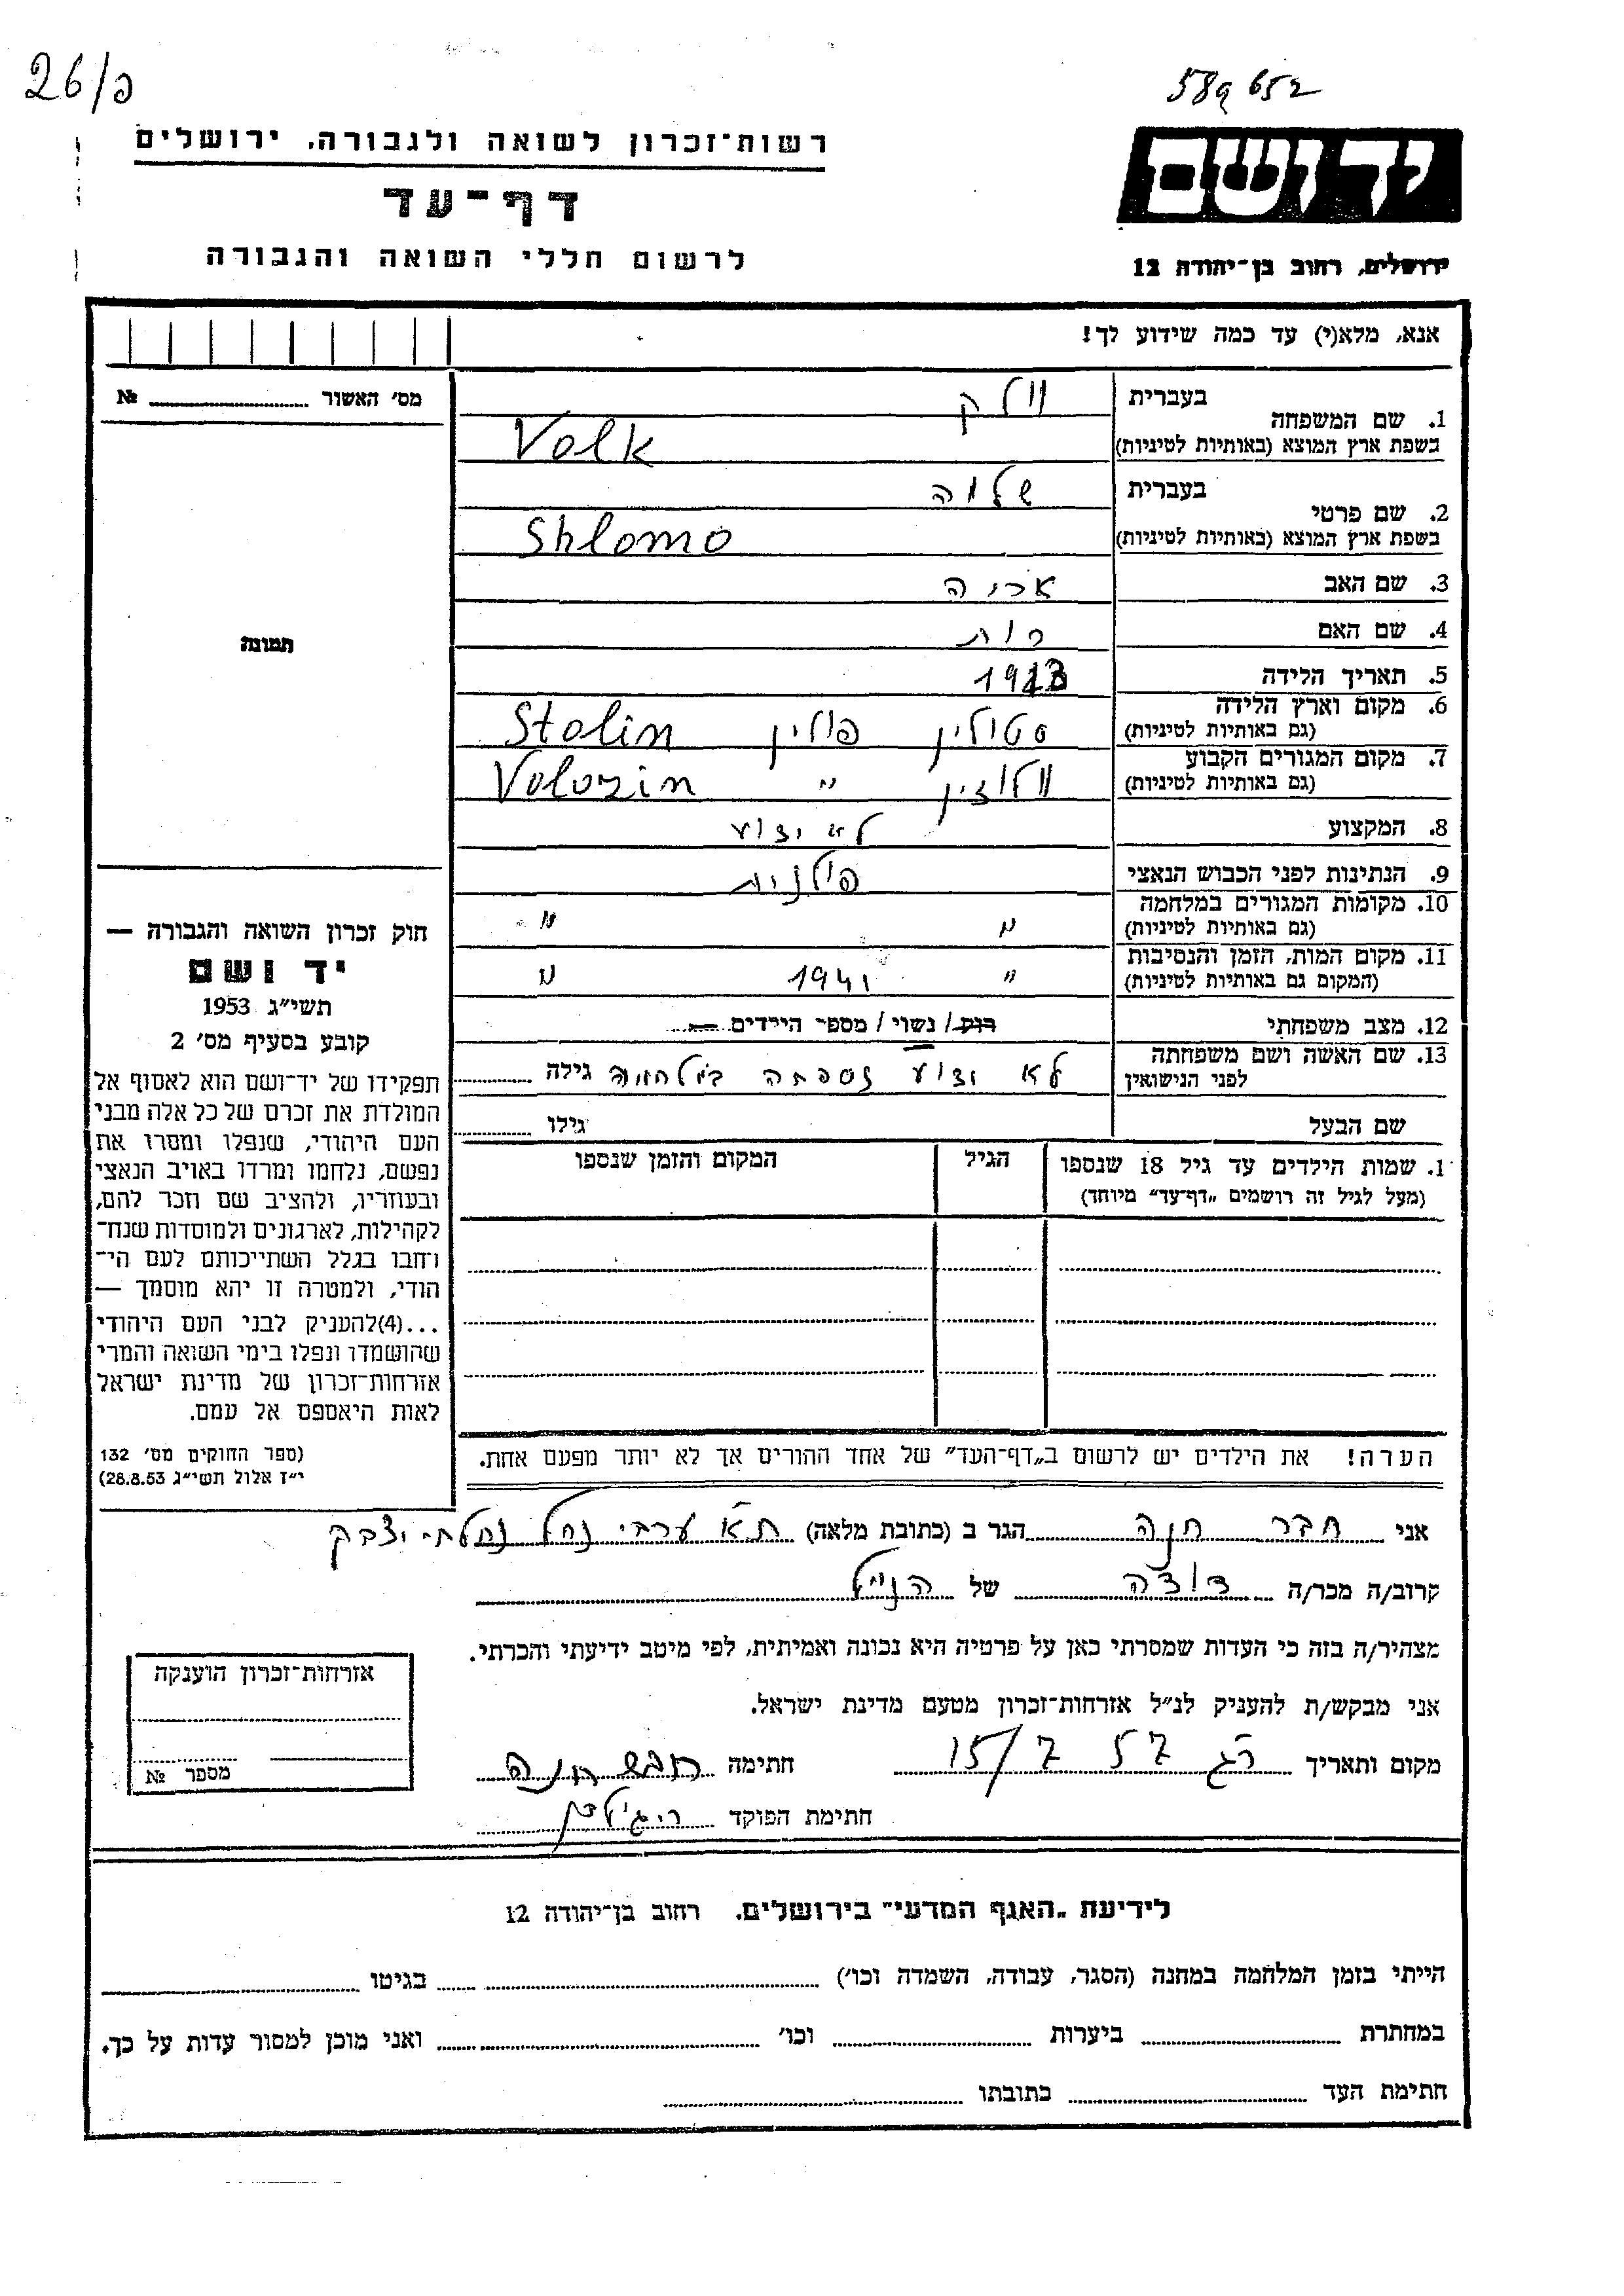 26/פ
58965२
רשות־זכרון לשואה ולגבורה, ירושלים
דף־עד
לרשום חללי השואה והגבורה
יד ושם
ירושלים, רחוב בן־יהודה 12
אנא, מלא(י) עד כמה שידוע לך!
מס׳ האשור № 
תמונה
1. שם המשפחה בעברית וולק
בשפת ארץ המוצא (באותיות לטיניות) Volk
2. שם פרטי בעברית שלמה
בשפת ארץ המוצא (באותיות לטיניות) Shlomo
3. שם האב אריה
4. שם האם רות
5. תאריך הלידה
6. מקום וארץ הלידה (גם באותיות לטיניות) סטולין פולין Stolin
7. מקום המגורים הקבוע (גם באותיות לטיניות) וולוזין " Volozin
8. המקצוע לא ידוע
9. הנתינות לפני הכבוש הנאצי פולנית
10. מקומות המגורים במלחמה (גם באותיות לטיניות) " "
11. מקום המות, הזמן והנסיבות (המקום גם באותיות לטיניות) " 1941 "
12. מצב משפחתי רוק/ נשוי/ מספר הילדים —
13. שם האשה ושם משפחתה לפני הנישואין לא ידוע נספתה במלחמה גילה
שם הבעל גילו
1. שמות הילדים עד גיל 18 שנספו (מעל לגיל זה רושמים „דף־עד" מיוחד) הגיל המקום והזמן שנספו
הערה! את הילדים יש לרשום ב„דף־העד" של אחד ההורים אך לא יותר מפעם אחת.
חוק זכרון השואה והגבורה —
יד ושם
תשי״ג 1953
קובע בסעיף מס׳ 2
תפקידו של יד־ושם הוא לאסוף אל
המולדת את זכרם של כל אלה מבני
העם היהודי, שנפלו ומסרו את
נפשם, נלחמו ומרדו באויב הנאצי
ובעוזריו, ולהציב שם וזכר להם,
לקהילות, לארגונים ולמוסדות שנח־
רחבו בגלל השתייכותם לעם הי־
הודי, ולמטרה זו יהא מוסמך —
...(4)להעניק לבני העם היהודי
שהושמדו ונפלו בימי השואה והמרי
אזרחות־זכרון של מדינת ישראל
לאות היאספם אל עמם.
(ספר החוקים מס׳ 132
י״ז אלול תשי״ג 28.8.53)
אני חבר חנה הגר ב (כתובת מלאה) ת״א ערבי נחל נחלת יצחק
קרוב/ה מכר/ה דודה של הנ״ל
מצהיר/ה בזה כי העדות שמסרתי כאן על פרטיה היא נכונה ואמיתית, לפי מיטב ידיעתי והכרתי.
אני מבקש/ת להעניק לנ״ל אזרחות־זכרון מטעם מדינת ישראל.
מקום ותאריך ר״ג 15/7 57 חתימה חבר חנה
חתימת הפוקד
אזרחות־זכרון הוענקה
מספר №
לידיעת „האגף המדעי" בירושלים, רחוב בן־יהודה 12
הייתי בזמן המלחמה במחנה (הסגר, עבודה, השמדה וכו׳) בגיטו
במחתרת ביערות וכו׳ ואני מוכן למסור עדות על כך.
חתימת העד כתובתו